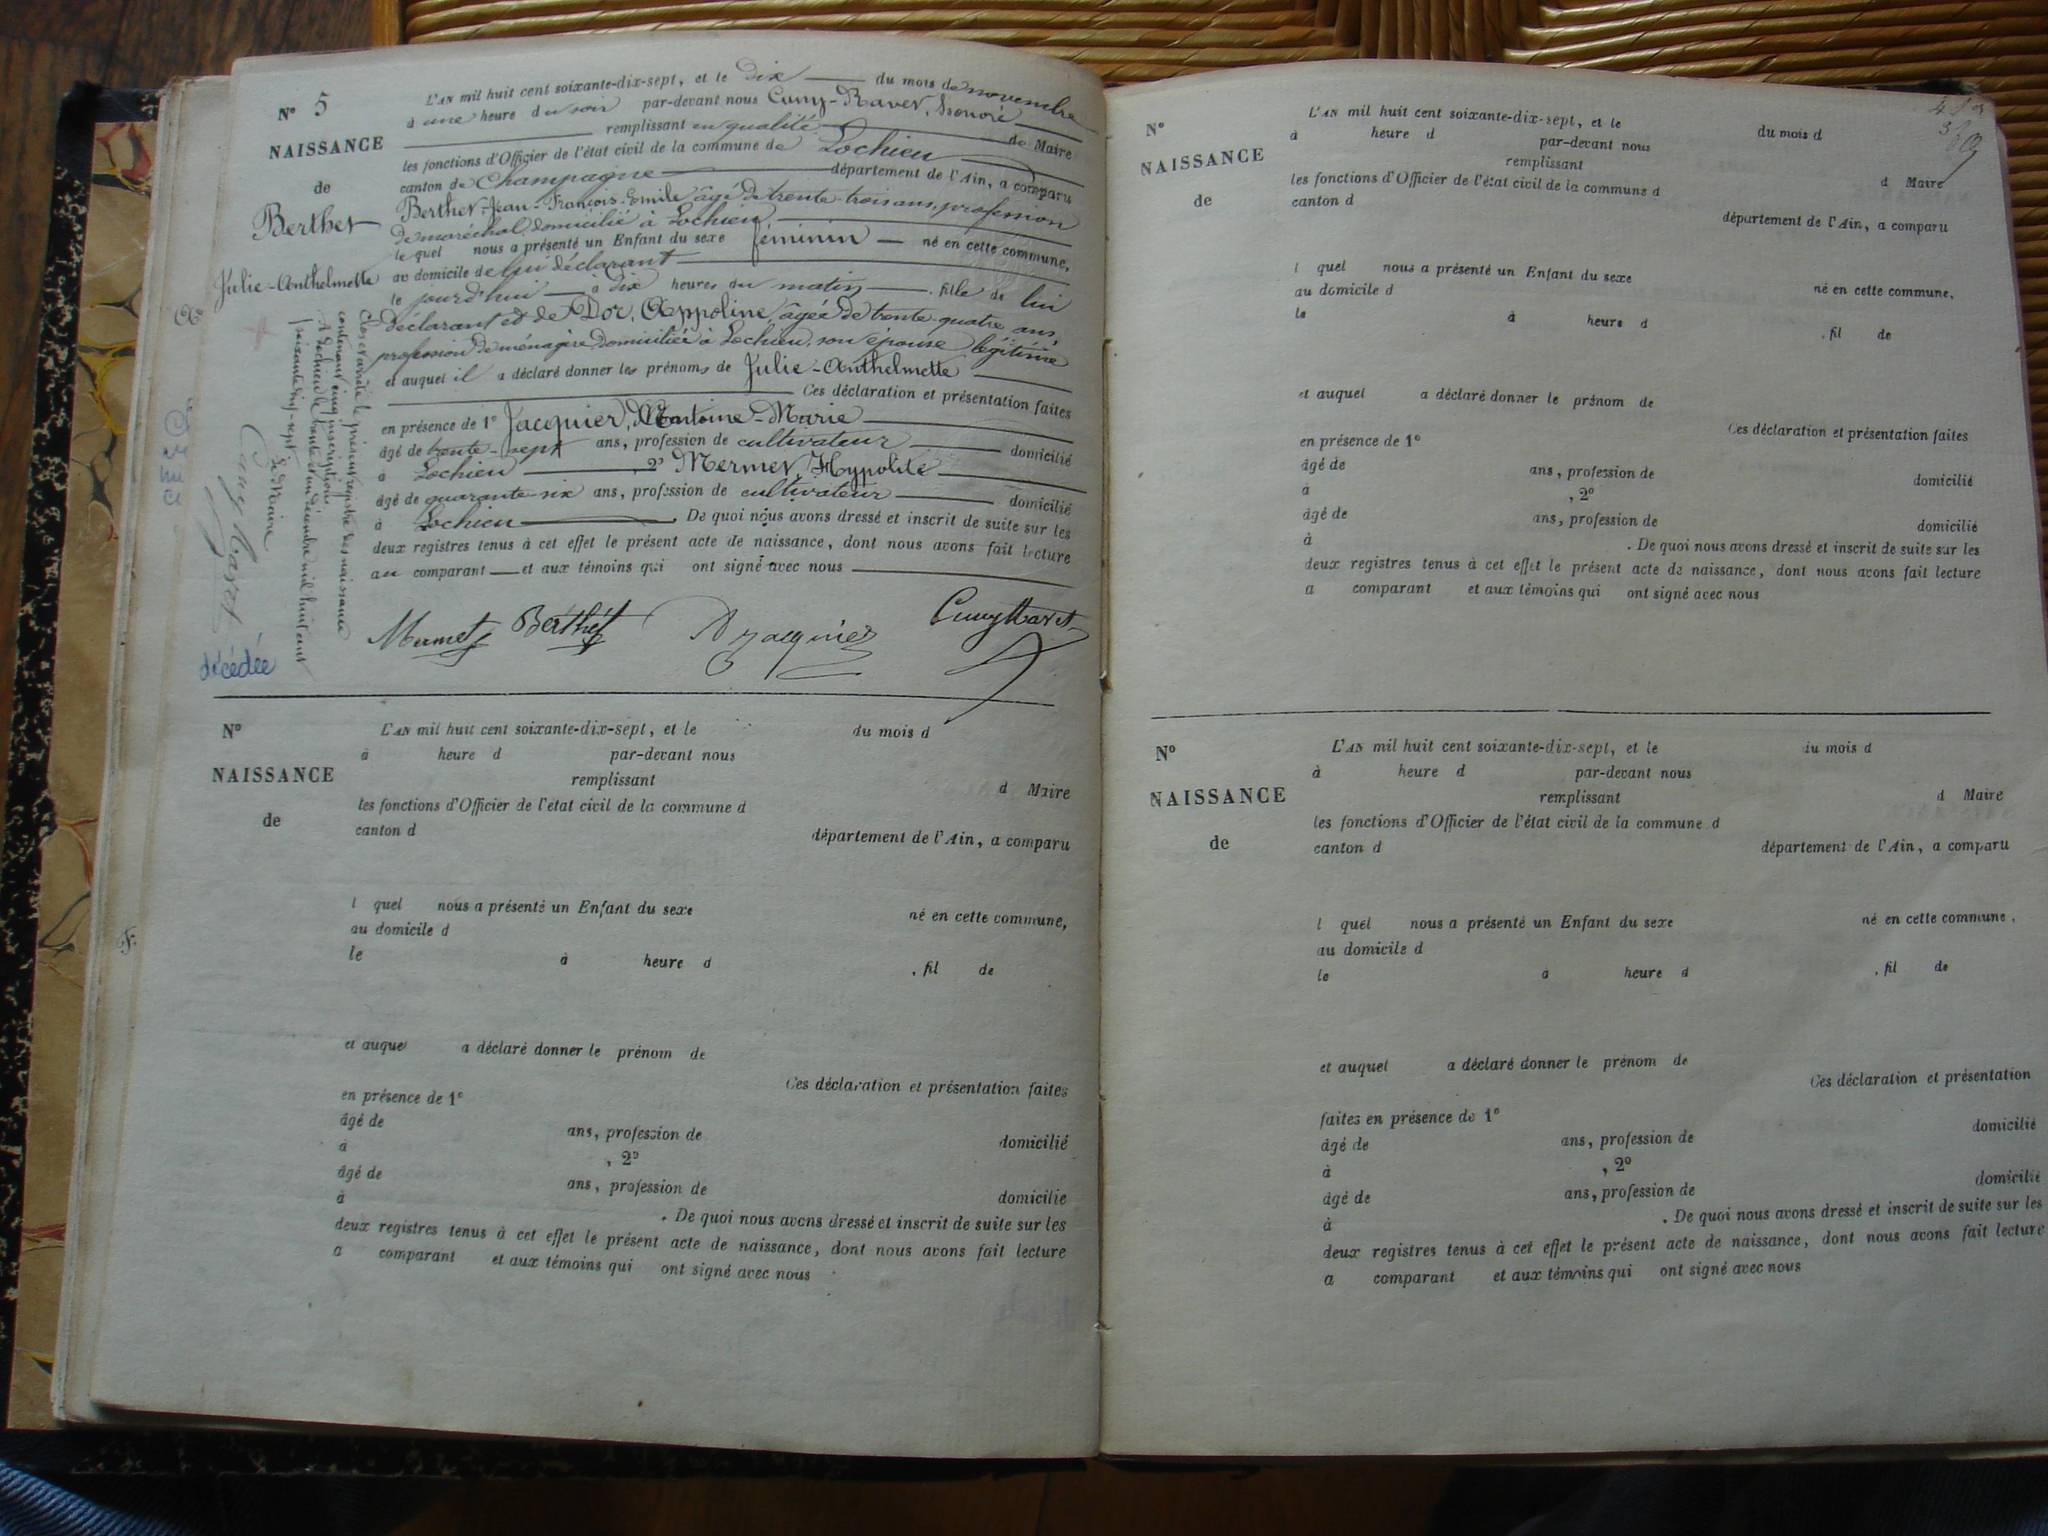 N° 5
NAISSANCE
de
Berthet
Julie-Anthelmette
L'AN mil huit cent soixante-dix-sept, et le dix du mois de novembre
à une heure du soir par-devant nous Cuny-Ravet, Honoré
remplissant en qualité de Maire
les fonctions d'Officier de l'état civil de la commune de Lochieu
canton de Champagne département de l'Ain, a comparu
Berthet-Jean-François-Emile âgé de trente-trois ans, profession
de maréchal, domicilié à Lochieu
lequel nous a présenté un Enfant du sexe féminin né en cette commune,
au domicile de lui déclarant
le jourd'hui à dix heures du matin, fille de lui
déclarant et de Dor, Appoline, âgée de trente-quatre ans,
profession de ménagère, domiciliée à Lochieu, son épouse légitime
et auquel il a déclaré donner les prénoms de Julie-Anthelmette
Ces déclaration et présentation faites
en présence de 1° Jacquier, Antoine-Marie
âgé de trente-sept ans, profession de cultivateur domicilié
à Lochieu, 2° Mermet, Hypolite
âgé de quarante-six ans, profession de cultivateur domicilié
à Lochieu. De quoi nous avons dressé et inscrit de suite sur les
deux registres tenus à cet effet le présent acte de naissance, dont nous avons fait lecture
au comparant et aux témoins qui ont signé avec nous
Mermet Berthet A Jacquier Cuny Ravet
Clos et arrêté le présent registre des naissances
contenant cinq inscriptions
A Lochieu le trente et un décembre mil huit cent
soixante dix-sept
Le Maire
Cuny Ravet
décédée
N°
NAISSANCE
de
L'AN mil huit cent soixante-dix-sept, et le du mois d
à heure d par-devant nous
remplissant
d Maire
les fonctions d'Officier de l'état civil de la commune d
canton d
département de l'Ain, a comparu
l quel nous a présenté un Enfant du sexe
né en cette commune,
au domicile d
le à heure d , fil de
et auque a déclaré donner le prénom de
Ces déclaration et présentation faites
en présence de 1°
âgé de ans, profession de domicilié
à , 2°
âgé de ans, profession de domicilié
à . De quoi nous avons dressé et inscrit de suite sur les
deux registres tenus à cet effet le présent acte de naissance, dont nous avons fait lecture
a comparant et aux témoins qui ont signé avec nous
N°
NAISSANCE
de
L'AN mil huit cent soixante-dix-sept, et le du mois d
à heure d par-devant nous
remplissant
d Maire
les fonctions d'Officier de l'état civil de la commune d
canton d
département de l'Ain, a comparu
l quel nous a présenté un Enfant du sexe
né en cette commune,
au domicile d
le à heure d , fil de
et auquel a déclaré donner le prénom de
Ces déclaration et présentation faites
en présence de 1°
âgé de ans, profession de domicilié
à , 2°
âgé de ans, profession de domicilié
à . De quoi nous avons dressé et inscrit de suite sur les
deux registres tenus à cet effet le présent acte de naissance, dont nous avons fait lecture
a comparant et aux témoins qui ont signé avec nous
N°
NAISSANCE
de
L'AN mil huit cent soixante-dix-sept, et le du mois d
à heure d par-devant nous
remplissant d Maire
les fonctions d'Officier de l'état civil de la commune d
canton d département de l'Ain, a comparu
l quel nous a présenté un Enfant du sexe né en cette commune,
au domicile d
le à heure d , fil de
et auquel a déclaré donner le prénom de
Ces déclaration et présentation
faites en présence de 1°
âgé de ans, profession de domicilié
à , 2°
âgé de ans, profession de domicilié
à . De quoi nous avons dressé et inscrit de suite sur les
deux registres tenus à cet effet le présent acte de naissance, dont nous avons fait lecture
a comparant et aux témoins qui ont signé avec nous